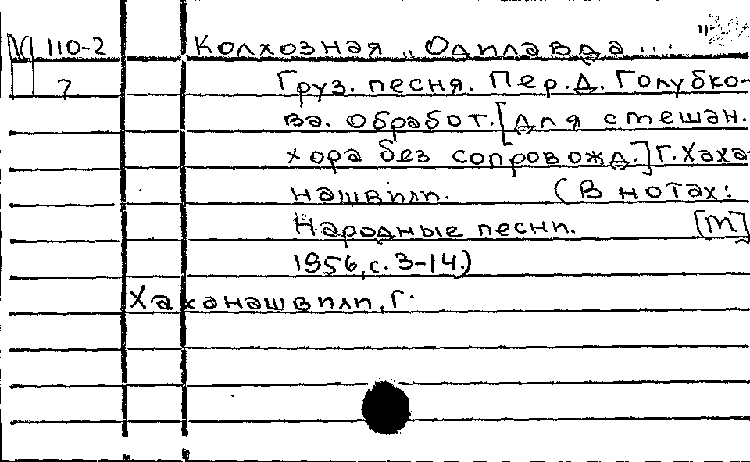 М 110-2 Колхозная „Одилавда"...
7 Груз. песня. Пер. Д. Голубко-
ва. обработ. [для смешан.
хора без сопровожд.] Г. Хаха
нашвили. (В нотах:
Народные песни. [М]
1956, с. 3-14.)
Хаханашвили, Г.